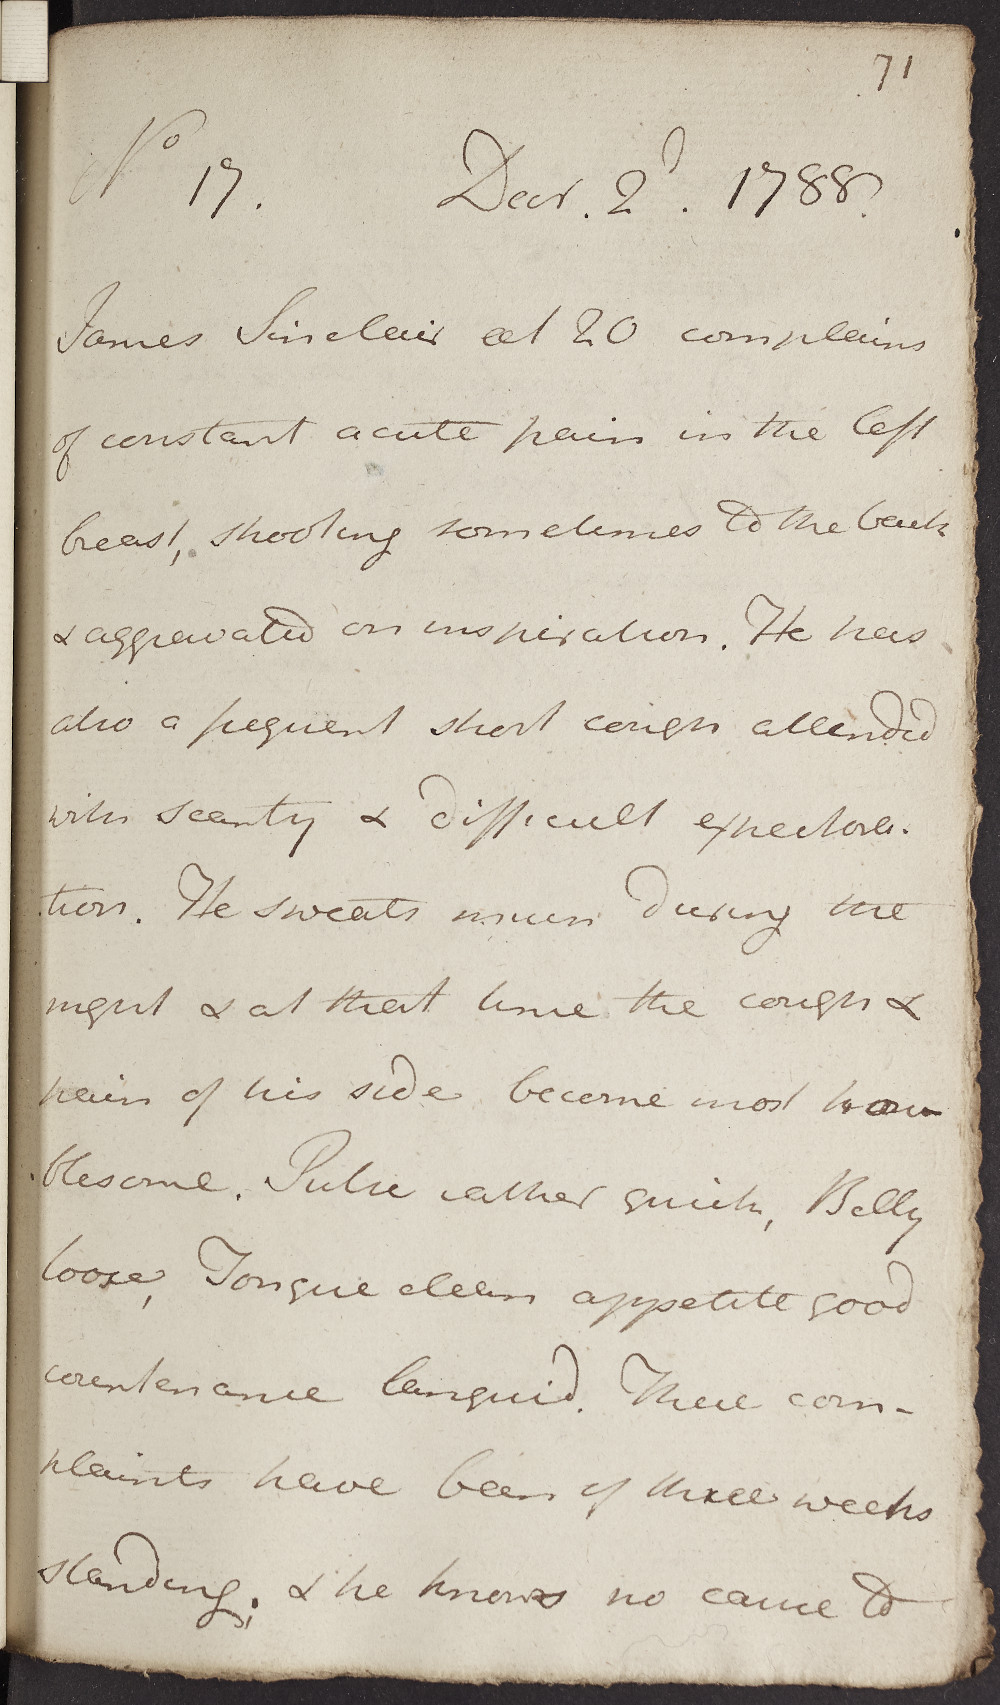 71
No 17. Decr. 2d. 1788.
James Sinclair aet 20 complains
of constant acute pain in the left
breast, shooting sometimes to the back
& aggravated on inspiration. He has
also a frequent short cough attended
with scanty & difficult expectora-
tion. He sweats much during the
night & at that time the cough &
pain of his side become most trou-
blesome. Pulse rather quick, Belly
loose, Tongue clean appetite good
countenance languid. These com-
plaints have been of three weeks
standing; & he knows no cause to